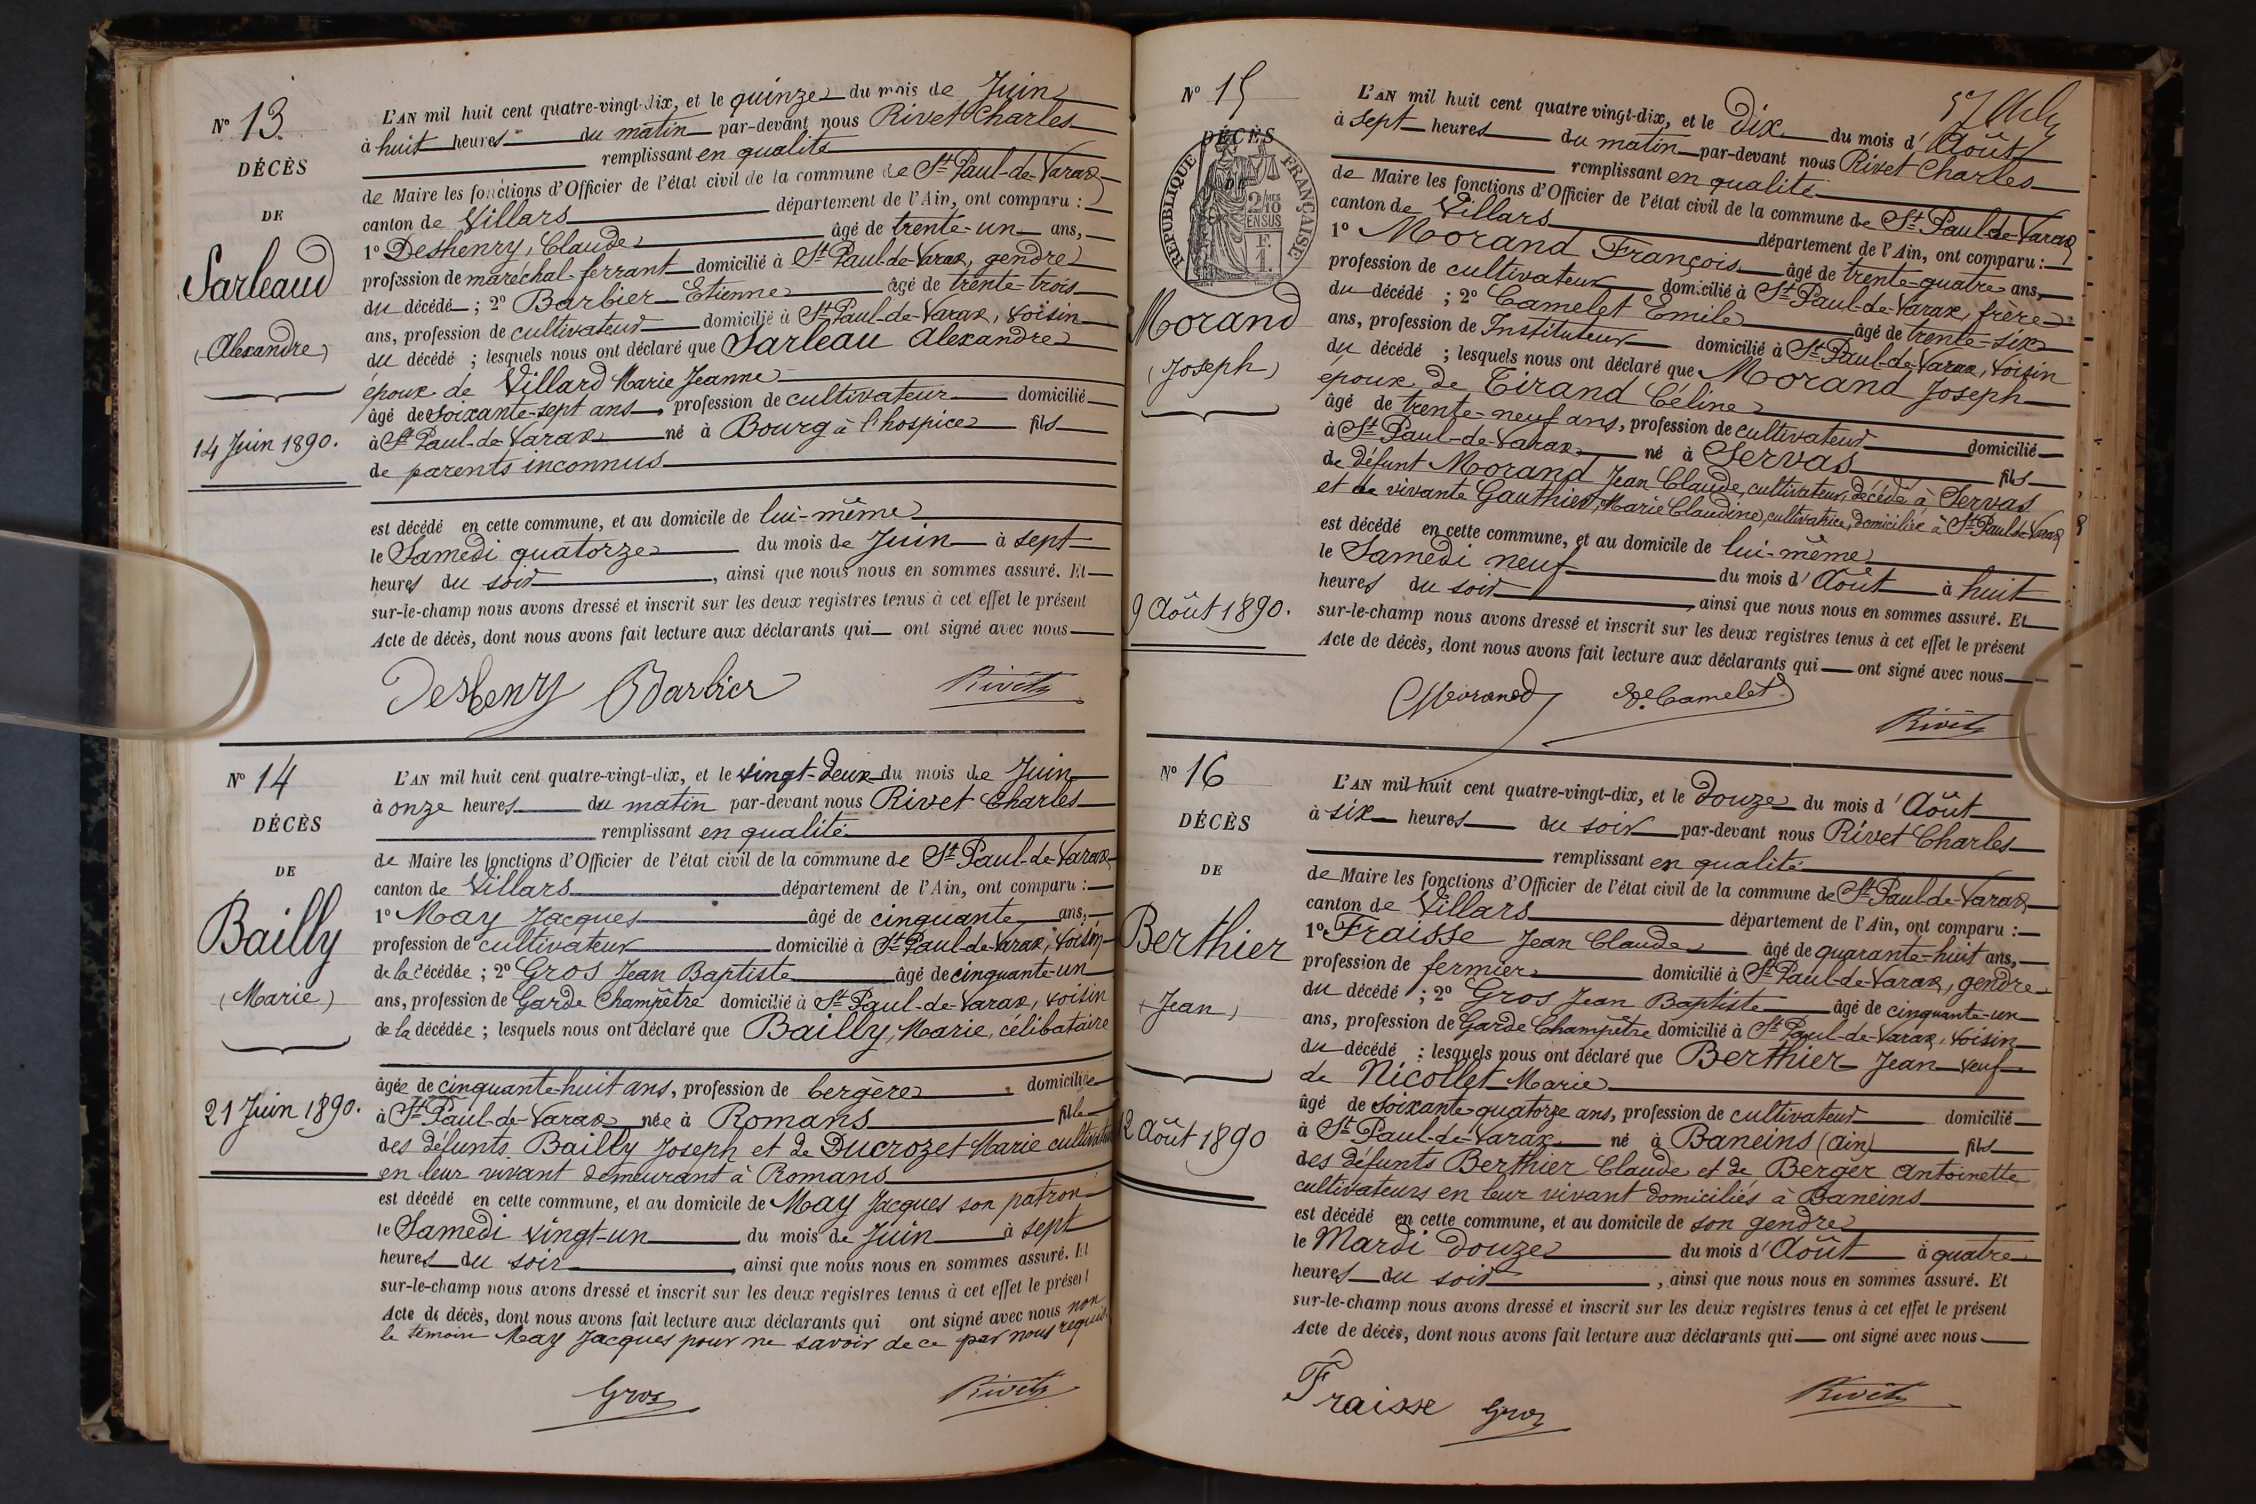 Nº 13.
DÉCÈS
DE
Sarleaud
(Alexandre)
14 Juin 1890.
L'AN mil huit cent quatre-vingt-dix, et le quinze du mois de Juin
à huit heures du matin par-devant nous Rivet Charles
remplissant en qualité
de Maire les fonctions d'Officier de l'état civil de la commune de St Paul-de-Varax
canton de Villars département de l'Ain, ont comparu :
1º Deshenry, Claude âgé de trente-un ans,
profession de maréchal-ferrant domicilié à St Paul-de-Varax, gendre
du décédé ; 2º Barbier Etienne âgé de trente-trois
ans, profession de cultivateur domicilié à St Paul-de-Varax, voisin
du décédé ; lesquels nous ont déclaré que Sarleau Alexandre
époux de Villard Marie Jeanne
âgé de soixante-sept ans, profession de cultivateur domicilié
à St Paul-de-Varax né à Bourg à l'hospice fils
de parents inconnus
est décédé en cette commune, et au domicile de lui-même
le Samedi quatorze du mois de Juin à sept
heures du soir, ainsi que nous nous en sommes assuré. Et
sur-le-champ nous avons dressé et inscrit sur les deux registres tenus à cet effet le présent
Acte de décès, dont nous avons fait lecture aux déclarants qui ont signé avec nous
Deshenry Barbier Rivet
Nº 14
DÉCÈS
DE
Bailly
(Marie)
21 Juin 1890.
L'AN mil huit cent quatre-vingt-dix, et le vingt-deux du mois de Juin
à onze heures du matin par-devant nous Rivet Charles
remplissant en qualité
de Maire les fonctions d'Officier de l'état civil de la commune de St Paul-de-Varax
canton de Villars département de l'Ain, ont comparu :
1º May Jacques âgé de cinquante ans,
profession de cultivateur domicilié à St Paul-de-Varax, voisin
de la décédée ; 2º Gros Jean Baptiste âgé de cinquante-un
ans, profession de Garde Champêtre domicilié à St Paul-de-Varax, voisin
de la décédée ; lesquels nous ont déclaré que Bailly, Marie, célibataire
âgée de cinquante-huit ans, profession de bergère, domiciliée
à St Paul-de-Varax née à Romans fille
des défunts Bailly Joseph et de Ducrozet Marie
en leur vivant demeurant à Romans
est décédé en cette commune, et au domicile de May Jacques son patron
le Samedi vingt-un du mois de Juin à sept
heures du soir, ainsi que nous nous en sommes assuré. Et
sur-le-champ nous avons dressé et inscrit sur les deux registres tenus à cet effet le présent
Acte de décès, dont nous avons fait lecture aux déclarants qui ont signé avec nous non
le témoin May Jacques pour ne savoir de ce par nous requis.
Gros Rivet
Nº 15
DÉCÈS
DE
RÉPUBLIQUE FRANÇAISE
2/10 EN SUS
F.
1.
Morand
(Joseph)
9 Août 1890.
L'AN mil huit cent quatre-vingt-dix, et le Dix du mois d'Août
à sept heures du matin par-devant nous Rivet Charles
remplissant en qualité
de Maire les fonctions d'Officier de l'état civil de la commune de St Paul-de-Varax
canton de Villars département de l'Ain, ont comparu :
1º Morand François âgé de trente-quatre ans,
profession de cultivateur domicilié à St Paul-de-Varax, frère
du décédé ; 2º Camelet Emile âgé de trente-six
ans, profession de Instituteur domicilié à St Paul-de-Varax, voisin
du décédé ; lesquels nous ont déclaré que Morand Joseph
époux de Tirand Céline
âgé de trente-neuf ans, profession de cultivateur domicilié
à St Paul-de-Varax né à Servas fils
de défunt Morand Jean Claude, cultivateur, décédé à Servas
et de vivante Gauthier, Marie Claudine, cultivatrice, domiciliée à St Paul-de-Varax
est décédé en cette commune, et au domicile de lui-même
le Samedi neuf du mois d'Août à huit
heures du soir, ainsi que nous nous en sommes assuré. Et
sur-le-champ nous avons dressé et inscrit sur les deux registres tenus à cet effet le présent
Acte de décès, dont nous avons fait lecture aux déclarants qui ont signé avec nous
Morand E. Camelet Rivet
Nº 16
DÉCÈS
DE
Berthier
(Jean)
12 Août 1890
L'AN mil huit cent quatre-vingt-dix, et le douze du mois d'Août
à six heures du soir par-devant nous Rivet Charles
remplissant en qualité
de Maire les fonctions d'Officier de l'état civil de la commune de St Paul-de-Varax
canton de Villars département de l'Ain, ont comparu :
1º Fraisse Jean Claude âgé de quarante-huit ans,
profession de fermier domicilié à St Paul-de-Varax, gendre
du décédé ; 2º Gros Jean Baptiste âgé de cinquante-un
ans, profession de Garde Champêtre domicilié à St Paul-de-Varax, voisin
du décédé ; lesquels nous ont déclaré que Berthier Jean veuf
de Nicollet Marie
âgé de soixante-quatorze ans, profession de cultivateur domicilié
à St Paul-de-Varax né à Baneins (Ain) fils
des défunts Berthier Claude et de Berger Antoinette
cultivateurs en leur vivant domiciliés à Baneins
est décédé en cette commune, et au domicile de son gendre
le Mardi douze du mois d'Août à quatre
heures du soir, ainsi que nous nous en sommes assuré. Et
sur-le-champ nous avons dressé et inscrit sur les deux registres tenus à cet effet le présent
Acte de décès, dont nous avons fait lecture aux déclarants qui ont signé avec nous
Fraisse Gros Rivet